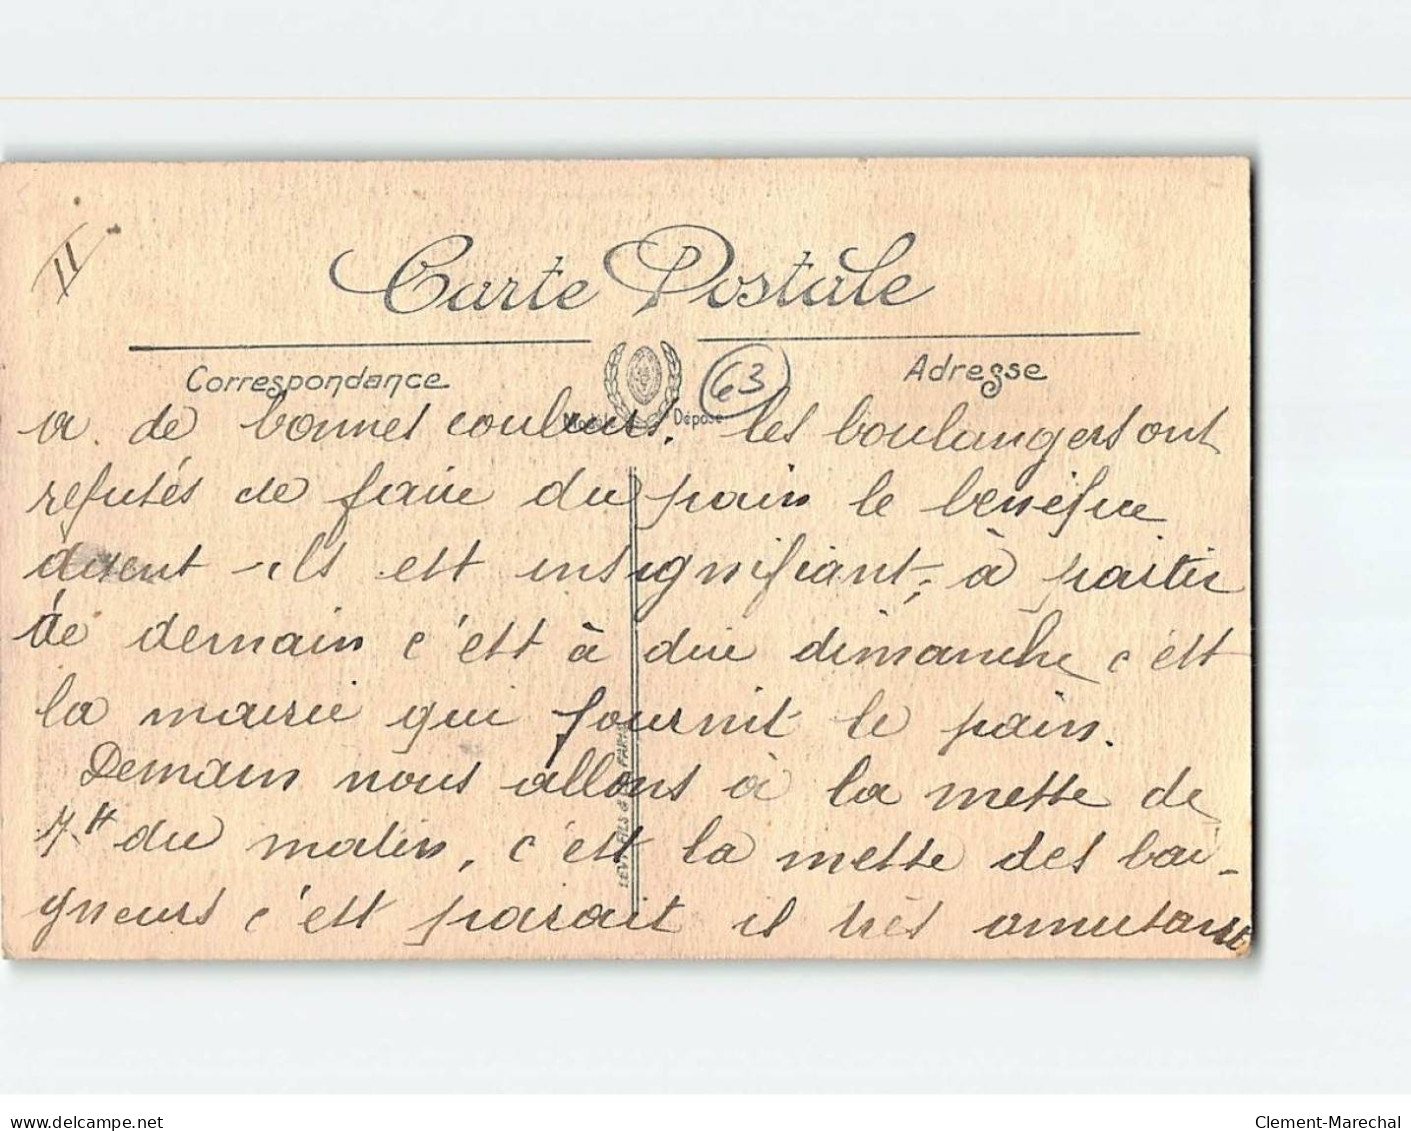 11
Carte Postale
Correspondance
63
Adresse
Modèle Déposé
a de bonnes couleurs. les boulangers ont
refusés de faire du pain le bénéfice
disent-ils est insignifiant, à partir
de demain c'est à dire dimanche c'est
la mairie qui fournit le pain.
Demain nous allons à la messe de
7H du matin, c'est la messe des bai-
gneurs c'est parait il très amusante
LEVY FILS & Cie PARIS
www.delcampe.net
Clement-Marechal